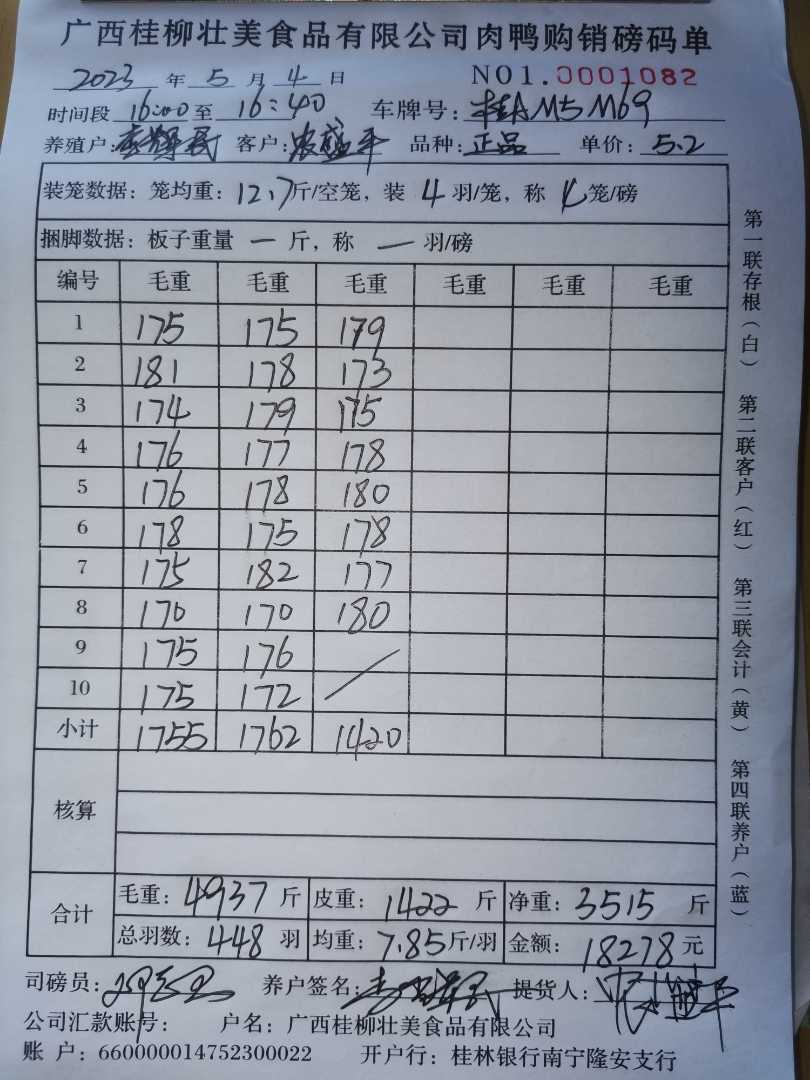 广西桂柳壮美食品有限公司肉鸭购销磅码单
2023 年 5 月 4 日 NO1.0001082
时间段 16:00 至 16:40 车牌号: 桂AM5M69
养殖户: 客户: 农盛平 品种: 正品 单价: 5.2
装笼数据: 笼均重: 12.7斤/空笼, 装 4 羽/笼, 称 4笼/磅
捆脚数据: 板子重量 一 斤, 称 一 羽/磅
编号 毛重 毛重 毛重 毛重 毛重 毛重
1 175 175 179
2 181 178 173
3 174 179 175
4 176 177 178
5 176 178 180
6 178 175 178
7 175 182 177
8 170 170 180
9 175 176
10 175 172
小计 1755 1762 1420
核算
合计 毛重: 4937 斤 皮重: 1422 斤 净重: 3515 斤
总羽数: 448 羽 均重: 7.85斤/羽 金额: 18278 元
司磅员: 养户签名: 提货人:
公司汇款账号: 户名: 广西桂柳壮美食品有限公司
账 户: 660000014752300022 开户行: 桂林银行南宁隆安支行
第一联存根(白) 第二联客户(红) 第三联会计(黄) 第四联养户(蓝)